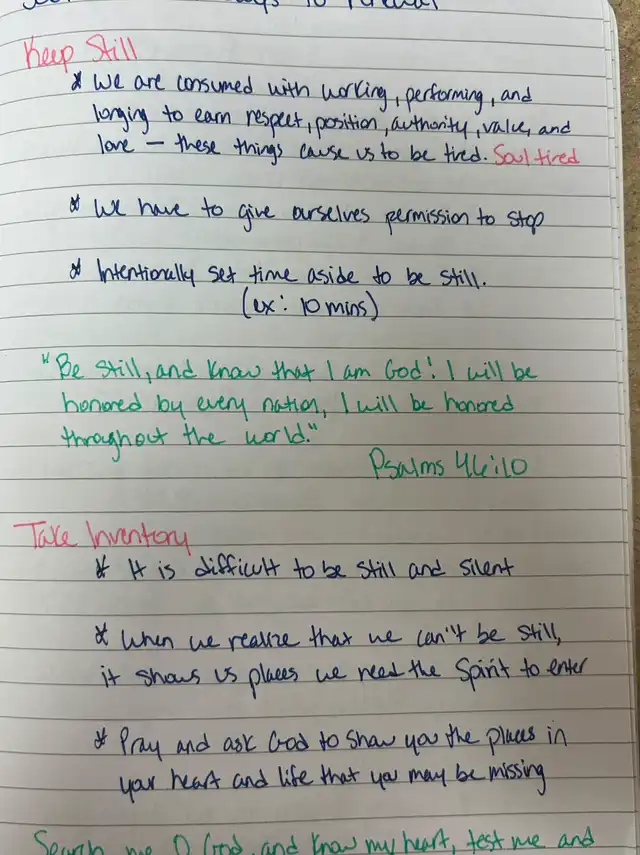 to
Keep Still
* We are consumed with working, performing, and
longing to earn respect, position, authority, value, and
love — these things cause us to be tired. Soul tired
* We have to give ourselves permission to stop
* Intentionally set time aside to be still.
(ex: 10 mins)
"Be still, and know that I am God! I will be
honored by every nation, I will be honored
throughout the world."
Psalms 46:10
Take Inventory
* It is difficult to be still and silent
* When we realize that we can't be still,
it shows us places we need the Spirit to enter
* Pray and ask God to show you the places in
your heart and life that you may be missing
Search me O God, and know my heart, test me and